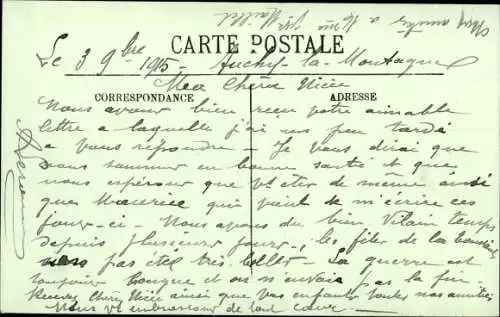 CARTE POSTALE
Le 3 9bre 1915 - Auchy-la-Montagne
Ma Chère Nièce
CORRESPONDANCE
ADRESSE
Nous avons bien reçu votre aimable
lettre a laquelle j'ai un peu tardé
a vous repondre - Je vous dirai que
nous sommes en bonne santé et que
nous espérons que vs êtes de même ainsi
que Maurice qui vient de m'écrire ces
jours-ci - Nous avons du bien vilain temps
depuis plusieurs jours, les fêtes de la
pas été très belles - La guerre est
toujours longue et on n'en voit pas la fin.
Recevez Chère Nièce ainsi que vos enfants toutes nos amitiés
Nous vs embrassons de tout coeur